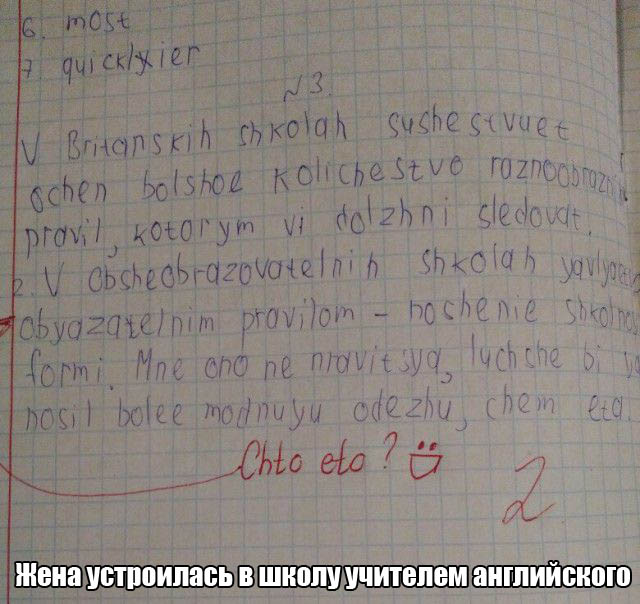 6. most
7 quicklyier
№3.
V Britanskih shkolah sushestvuet
ochen bolshoe kolichestvo raznoobraznih
pravil, kotorym vi dolzhni sledovat.
2. V obsheobrazovatelnih shkolah
obyazatelnim pravilom - noshenie shkolnoy
formi. Mne ono ne nravitsya, luchshe bi ya
nosil bolee modnuyu odezhu, chem eta.
Chto eto?
2
Жена устроилась в школу учителем английского